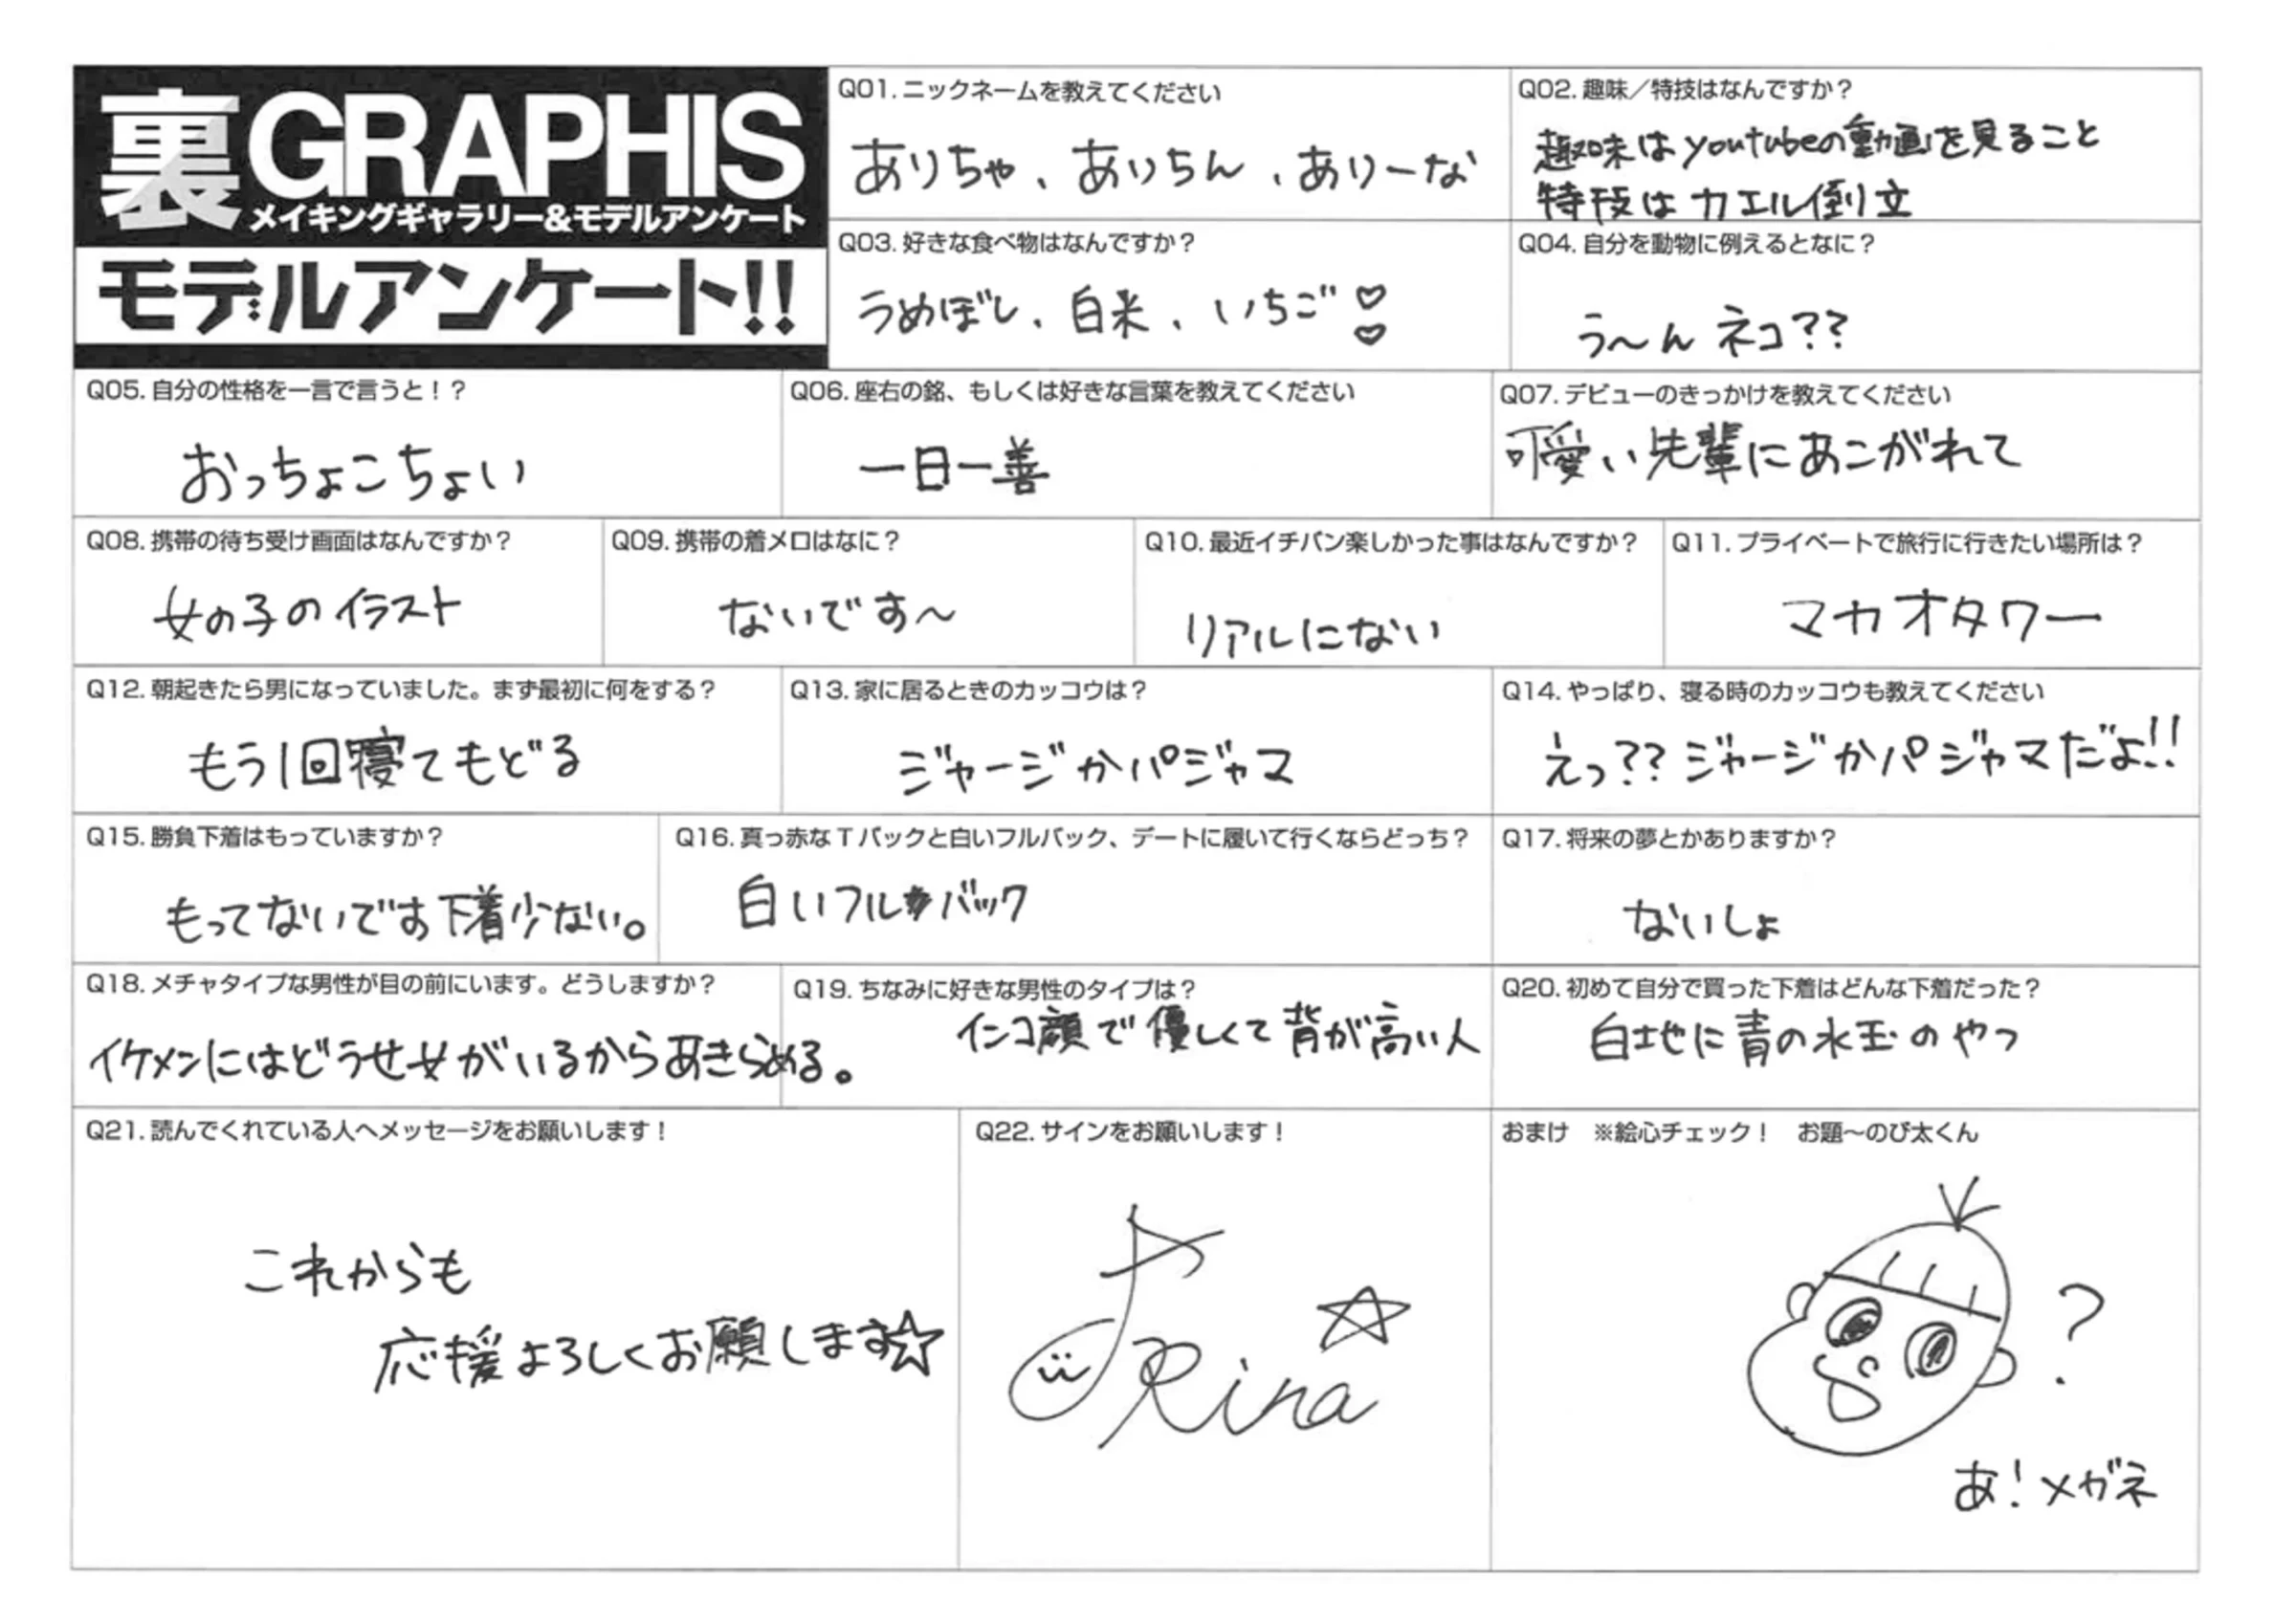 裏GRAPHIS
メイキングギャラリー&モデルアンケート
モデルアンケート!!
Q01.ニックネームを教えてください
ありちゃ、ありちん、ありーな
Q02.趣味／特技はなんですか？
趣味はyoutubeの動画を見ること
特技はカエル倒立
Q03.好きな食べ物はなんですか？
うめぼし、白米、いちご♡♡
Q04.自分を動物に例えるとなに？
う〜ん ネコ??
Q05.自分の性格を一言で言うと！？
おっちょこちょい
Q06.座右の銘、もしくは好きな言葉を教えてください
一日一善
Q07.デビューのきっかけを教えてください
可愛い先輩にあこがれて
Q08.携帯の待ち受け画面はなんですか？
女の子のイラスト
Q09.携帯の着メロはなに？
ないです〜
Q10.最近イチバン楽しかった事はなんですか？
リアルにない
Q11.プライベートで旅行に行きたい場所は？
マカオタワー
Q12.朝起きたら男になっていました。まず最初に何をする？
もう1回寝てもどる
Q13.家に居るときのカッコウは？
ジャージかパジャマ
Q14.やっぱり、寝る時のカッコウも教えてください
えっ??ジャージかパジャマだよ!!
Q15.勝負下着はもっていますか？
もってないです下着少ない。
Q16.真っ赤なTバックと白いフルバック、デートに履いて行くならどっち？
白いフルバック
Q17.将来の夢とかありますか？
ないしょ
Q18.メチャタイプな男性が目の前にいます。どうしますか？
イケメンにはどうせ女がいるからあきらめる。
Q19.ちなみに好きな男性のタイプは？
インコ顔で優しくて背が高い人
Q20.初めて自分で買った下着はどんな下着だった？
白地に青の水玉のやつ
Q21.読んでくれている人へメッセージをお願いします！
これからも
応援よろしくお願します☆
Q22.サインをお願いします！
Rina☆
おまけ ※絵心チェック！ お題〜のび太くん
?
あ!メガネ